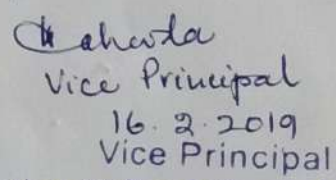 Vice Principal
16.2.2019
Vice Principal